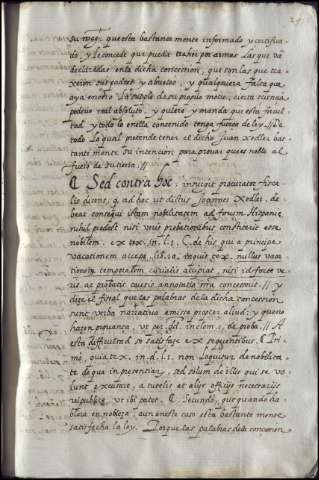 su mag.d que esta bastantemente informado y certifica
do, y le concede que pueda traher por armas las que va
declaradas en la dicha concession, que son las que
sus padres y abuelos, y qualquiera falta que
aya en ello la suple de su proprio motu, cierta sciencia
poderio real absoluto, y quiere y manda que esta facul
tad y todo lo en ella contenido tenga fuerça de ley
todo lo qual pretende tener el dicho Juan Xedler bas
tantemente su intencion para provar que es noble al
fuero de su tierra. //
Sed contra hoc, insurgit procurator fisca
lis dicens, q. ad hoc ut dictus Joannes Xedler, de
beat consequi istam nobilitatem ad forum Hispanie
nihil prodest nisi veris probationibus constiterit esse
nobilem. ex tex. in. l. 1. C. de his qui a principe
vacationem accep. lib. 10. atquis tex. nullus vaca
tionem temporalem acipiat, nisi id fore ve
rius ac probatis annotatio mea concesserit. // y
dize el fiscal que las palabras de la dicha concession
sunt verba narrativa emissa propter aliud: y que no
hazen provança, ut per gl. in clem. 1. de proba. // A
esta difficultad se satisfaze ex sequentibus. Pri
mo, quia tex. in. d. l. 1. non loquitur de nobilita
te de qua in presentiar. sed solum de illis que se vo
lunt excusare, a tutelis et alijs officijs necessarijs
reipublice, ut ibi patet. Secundo, que quando ha
blara en nobleza, aun en este caso esta bastantemente
satisfecha la ley. Porque las palabras de la concession